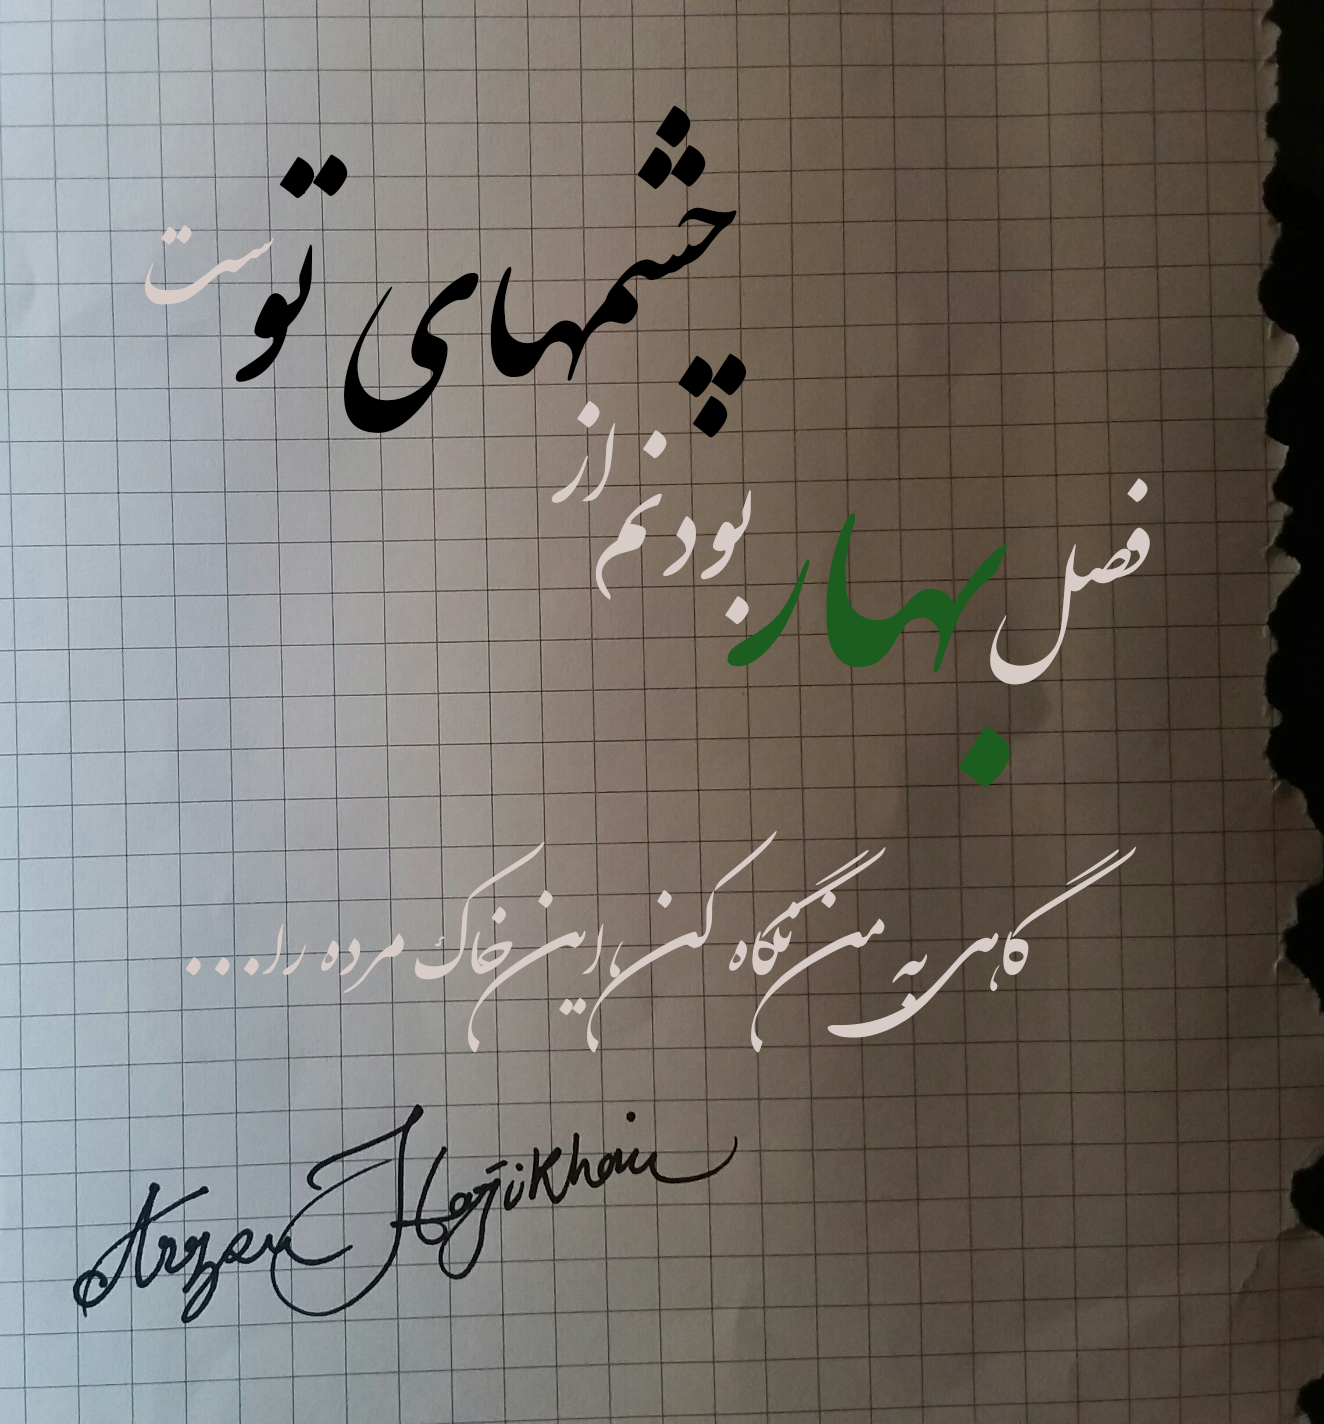 فصل بهار بودنم از چشمهای توست
گاهی به من نگاه کن، این خاک مرده را...
Arzan Hajikhani